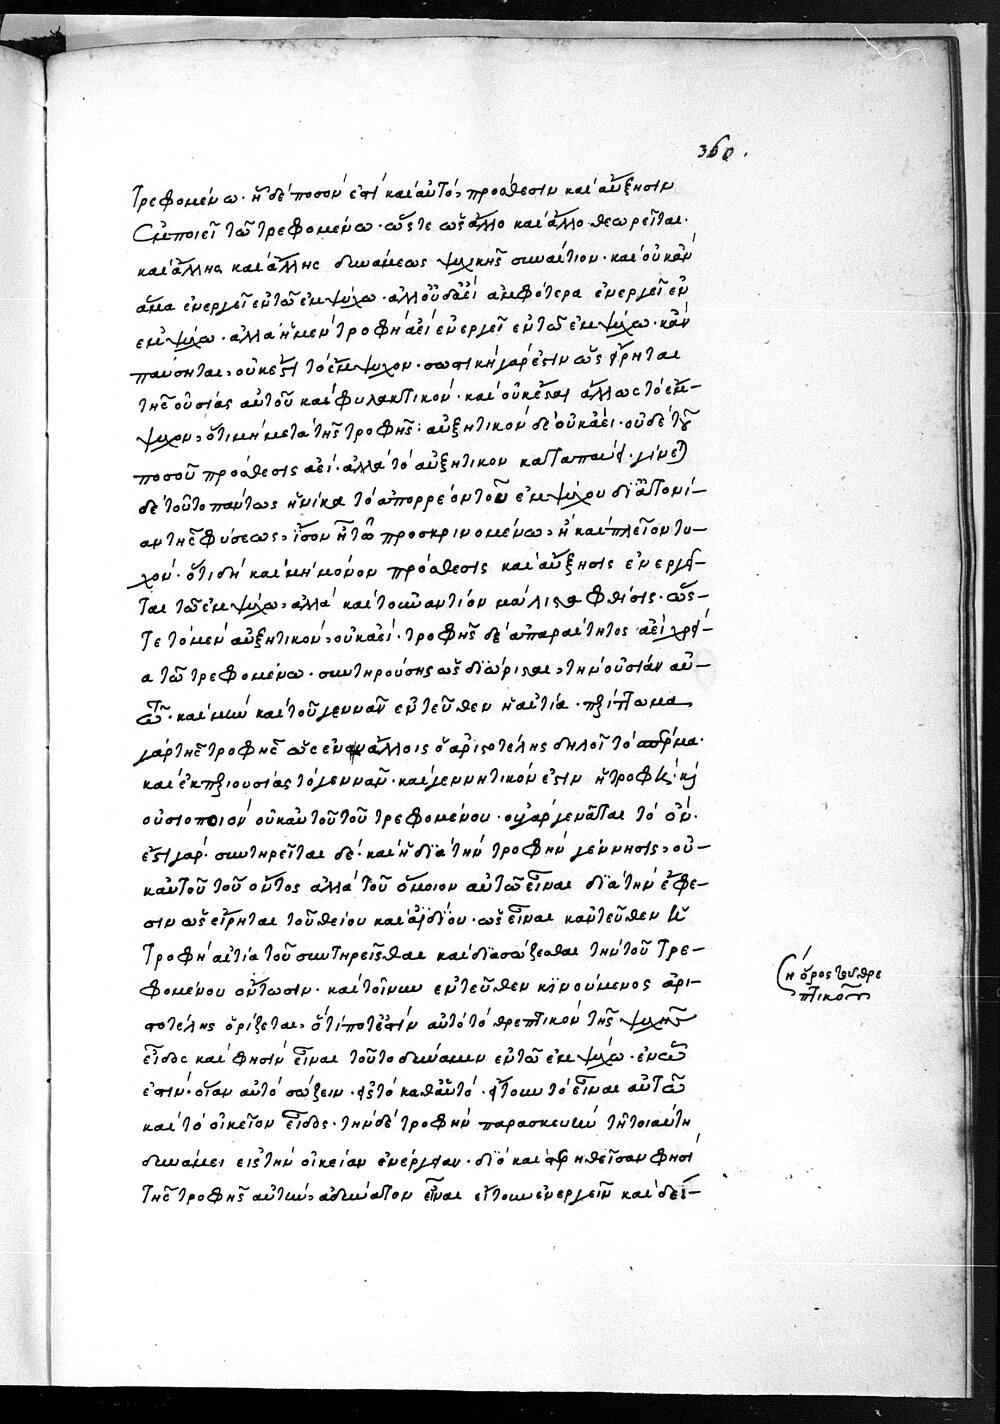 360.
τρεφομένω. ἡ δὲ ποσόν ἐστί καὶ αὐτό, πρόσθεσιν καὶ αὔξησιν
ἐμποιεῖ τῶ τρεφομένω. ὥστε ὡς ἄλλο καὶ ἄλλο θεωρεῖται.
καὶ ἄλλης καὶ ἄλλης δυνάμεως ψυχικῆς συναίτιον. καὶ οὐκ ἂν
ἅμα ἐνεργεῖ ἐν τῶ ἐμψύχω. ἀλλ' οὐδ' ἀεί ἀμφότερα ἐνεργεῖ ἐν
ἐμψύχω. ἀλλὰ ἡ μὲν τροφὴ ἀεί ἐνεργεῖ ἐν τῶ ἐμψύχω. κἂν
παύσηται, οὐκέτι τὸ ἔμψυχον. σωστικὴ γάρ ἐστιν ὡς εἴρηται
τῆς οὐσίας αὐτοῦ καὶ φυλακτικόν. καὶ οὐκ ἔστιν ἄλλως τὸ ἔμ-
ψυχον, ὅτι μὴ μετὰ τῆς τροφῆς: αὐξητικόν δὲ οὐκ ἀεί. οὐδὲ τοῦ
ποσοῦ πρόσθεσις ἀεί. ἀλλὰ τὸ αὐξητικον καταπαύει. γίνεται
δὲ τοῦτο πάντως ἡνίκα τὸ ἀπορρέον τοῦ ἐμψύχου δι' ἀτονί-
αν τῆς φύσεως, ἴσον ἦ τῶ προσκρινομένω, ἢ καὶ πλεῖον τυ-
χόν. ὅτι δὴ καὶ μὴ μόνον πρόσθεσις καὶ αὔξησις ἐνεργεῖ-
ται τῶ ἐμψύχω, ἀλλὰ καὶ τοὐναντίον μάλιστα φθίσις. ὥσ-
τε τὸ μὲν αὐξητικόν, οὐκ ἀεί. τροφῆς δὲ ἀπαραίτητος ἀεὶ χρεί-
α τῶ τρεφομένω. συντηρούσης ὡς διώρισται, τὴν οὐσίαν αὐ-
τῶ. καὶ μὴν καὶ τοῦ γεννᾶν ἐντεῦθεν ἡ αἰτία. περίττωμα
γὰρ τῆς τροφῆς ὡς ἐν ἄλλοις ὁ ἀριστοτέλης δηλοῖ τὸ σπέρμα.
καὶ ἐκ περιουσίας τὸ γεννᾶν. καὶ γεννητικόν ἐστιν ἡ τροφὴ. καὶ
οὐσιοποιόν οὐκ αὐτοῦ τοῦ τρεφομένου. οὐ γὰρ γεννᾶται τὸ ὄν.
ἔστι γάρ. συντηρεῖται δὲ. καὶ ἡ διὰ τὴν τροφὴν γέννησις, οὐ-
κ αὐτοῦ τοῦ ὄντος ἀλλὰ τοῦ ὅμοιον αὐτῶ εἶναι διὰ τὴν ἔφε-
σιν ὡς εἴρηται τοῦ θείου καὶ ἀϊδίου. ὡς εἶναι κἀντεῦθεν ἡ
τροφὴ αἰτία τοῦ συντηρεῖσθαι καὶ διασώζεσθαι τὴν τοῦ τρε-
φομένου ὄντωσιν. καὶ τοίνυν ἐντεῦθεν κινούμενος ἀρι-
στοτέλης ὁρίζεται, ὅτί ποτέ ἐστίν αὐτὸ τὸ θρεπτικὸν τῆς ψυχῆς
εἶδος καὶ φησὶν εἶναι τοῦτο δύναμιν ἐν τῶ ἐμψύχω. ἐν ᾧ
ἐστιν. οἵαν αὐτὸ σώζειν. εἰς τὸ καθ' αὑτό. ἤτοι τὸ εἶναι αὐτῶ
κατὰ τὸ οἰκεῖον εἶδος. τὴν δὲ τροφὴν παρασκευὴν τῆ τοιαύτη
δυνάμει εἰς τὴν οἰκείαν ἐνέργειαν. διὸ καὶ στερηθεῖσαν φησί
τῆς τροφῆς αὐτήν, ἀδύνατον εἶναι εἴτουν ἐνεργεῖν καὶ δεί-
ἡ ὅρος τοῦ θρε
πτικοῦ